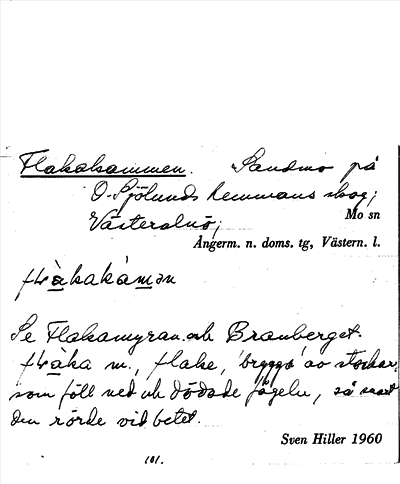 Flakakammen. Sandmo på
O. Sjölunds hemmans skog;
Mo sn
Västeralnö;
Ångerm. n. doms. tg, Västern. l.
Se Flakamyran och Branberget.
m., flake, 'brygga' av stockar,
som föll ned och dödade fågeln, så snart
den rörde vid betet.
Sven Hiller 1960
101.